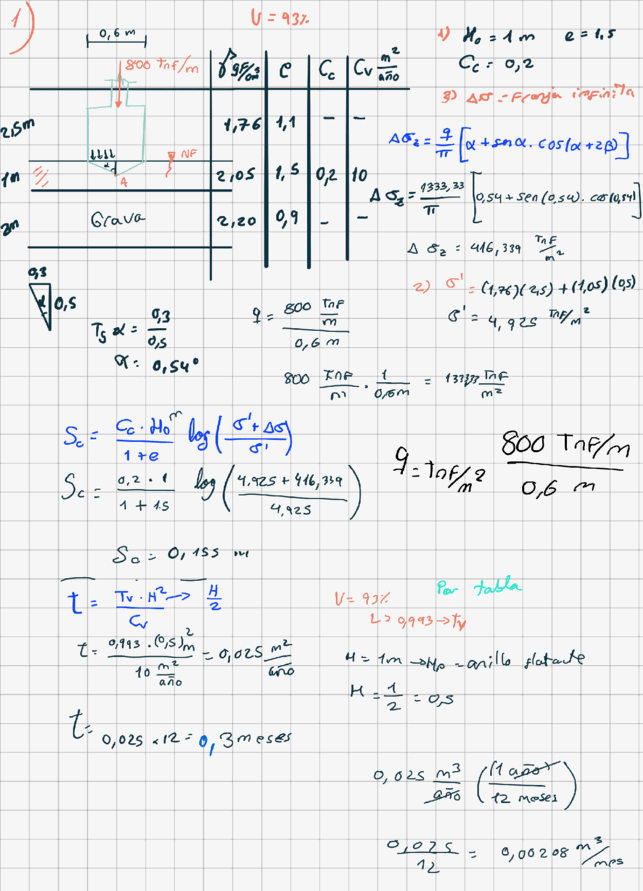 1)
U = 93%
0,6 m
800 Tnf/m
γ gf/cm³ e Cc Cv m²/año
2,5m 1,76 1,1 - -
NF
1m A 2,05 1,5 0,2 10
2m Grava 2,20 0,9 - -
1) H₀ = 1 m e = 1,5
Cc = 0,2
3) Δσ = Franja infinita
Δσz = q/π [α + senα. cos(α+2β)]
Δσz = 1333,33/π [0,54 + sen(0,54). cos(0,54)]
Δσz = 416,339 Tnf/m²
2) σ' = (1,76)(2,5) + (1,05)(0,5)
σ' = 4,925 Tnf/m²
0,3
α 0,5
Tg α = 0,3/0,5
α = 0,54°
q = 800 Tnf/m / 0,6 m
800 Tnf/m . 1/0,6m = 1333,33 Tnf/m²
q = Tnf/m² 800 Tnf/m / 0,6 m
Sc = Cc. H₀ᵐ/1+e log(σ'+Δσ/σ')
Sc = 0,2 . 1/1 + 1,5 log(4,925 + 416,339/4,925)
Sc = 0,155 m
t = Tv . H²/Cv → H/2
U = 93%
↳ 0,993 → Tv
Por tabla
t = 0,993 . (0,5)²m/10 m²/año = 0,025 m²/año
H = 1m → H₀ = anillo flotante
H = 1/2 = 0,5
t = 0,025 × 12 = 0,3 meses
0,025 m³/año (1 año/12 meses)
0,025/12 = 0,00208 m³/mes